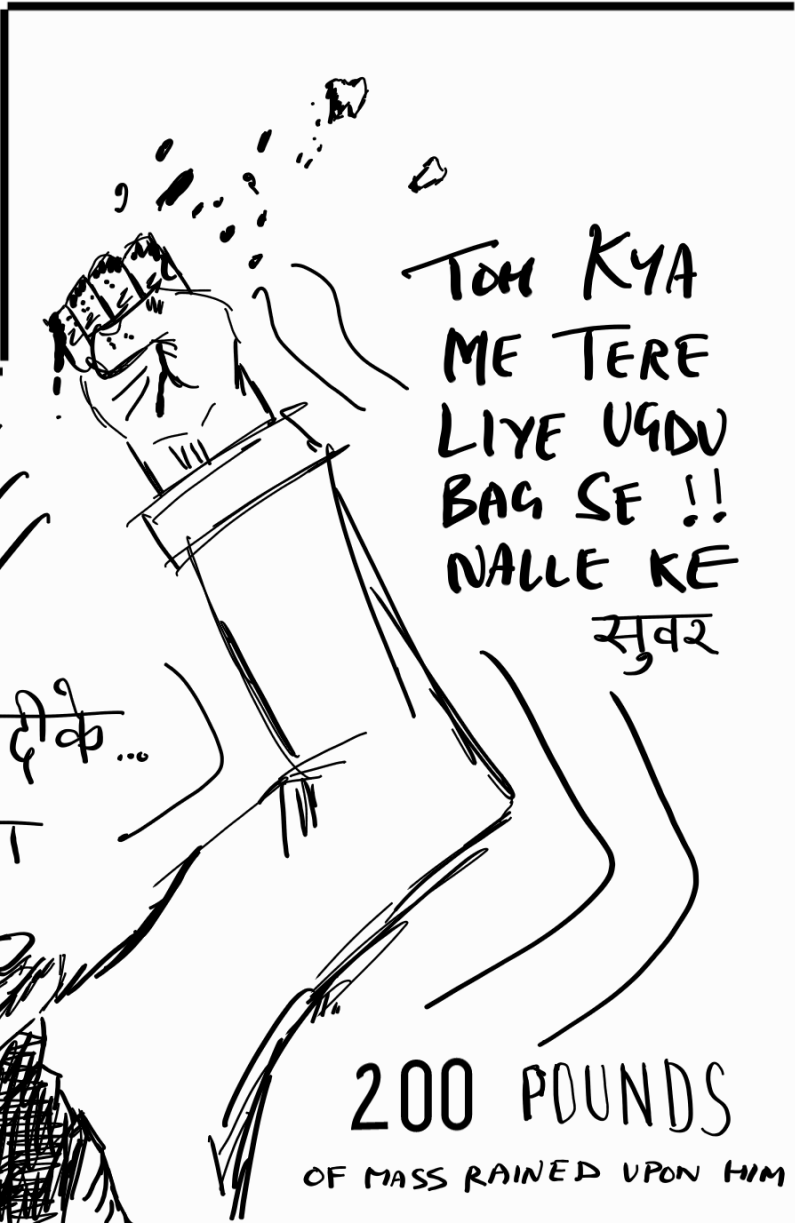 TOH KYA
ME TERE
LIYE UGDU
BAG SE !!
NALLE KE
सुवर
दीके...
200 POUNDS
OF MASS RAINED UPON HIM